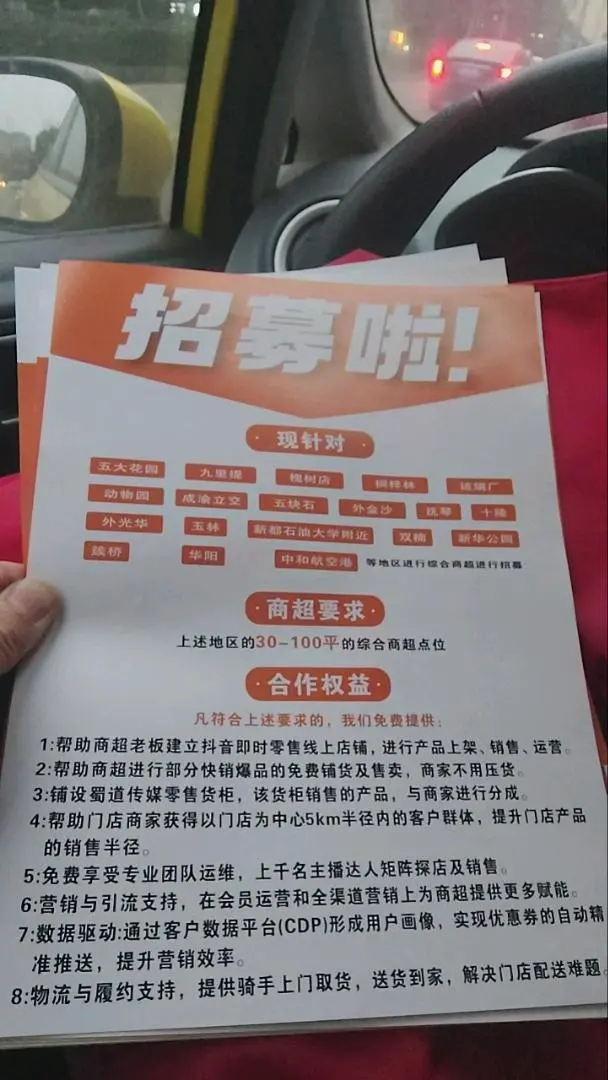 招募啦!
现针对
五大花园 九里提 槐树店 桐梓林 琉璃厂
动物园 成渝立交 五块石 外金沙 抚琴 十陵
外光华 玉林 新都石油大学附近 双楠 新华公园
簇桥 华阳 中和航空港 等地区进行综合商超进行招募
·商超要求·
上述地区的30-100平的综合商超点位
·合作权益·
凡符合上述要求的，我们免费提供：
1:帮助商超老板建立抖音即时零售线上店铺，进行产品上架、销售、运营。
2:帮助商超进行部分快销爆品的免费铺货及售卖，商家不用压货。
3:铺设蜀道传媒零售货柜，该货柜销售的产品，与商家进行分成。
4:帮助门店商家获得以门店为中心5km半径内的客户群体，提升门店产品
的销售半径。
5:免费享受专业团队运维，上千名主播达人矩阵探店及销售。
6:营销与引流支持，在会员运营和全渠道营销上为商超提供更多赋能。
7:数据驱动:通过客户数据平台(CDP)形成用户画像，实现优惠券的自动精
准推送，提升营销效率。
8:物流与履约支持，提供骑手上门取货，送货到家，解决门店配送难题。